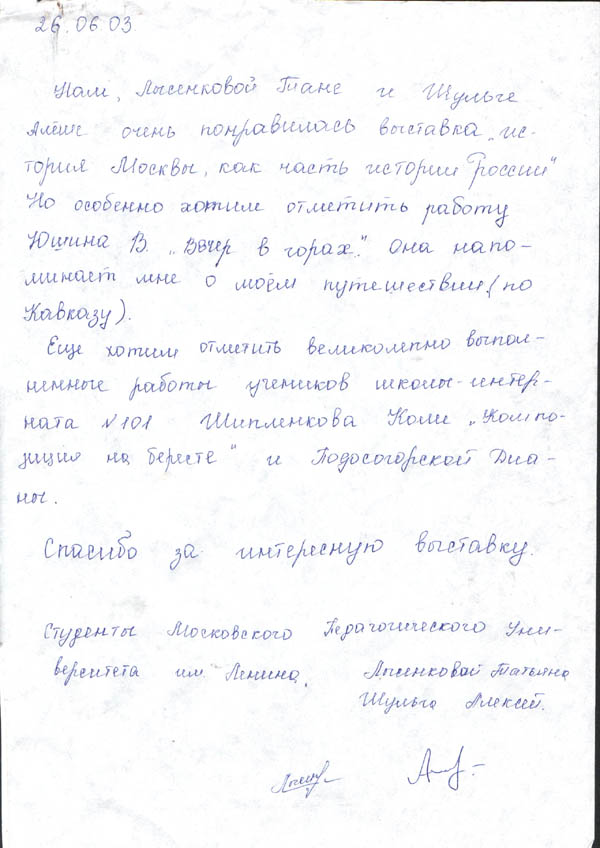 26.06.03.
Нам, Лысенковой Тане и Шульге
Алёше очень понравилась выставка „ис-
тория Москвы, как часть истории России"
Но особенно хотим отметить работу
Юшина В. „Вечер в горах". Она напо-
минает мне о моём путешествии (по
Кавказу).
Еще хотим отметить великолепно выпол-
ненные работы учеников школы-интер-
ната №101 Шипленкова Коли „Компо-
зиция на бересте" и Подосогорской Диа-
ны.
Спасибо за интересную выставку.
Студенты Московского Педагогического Уни-
верситета им. Ленина. Лысенковой Татьяна
Шульга Алексей.